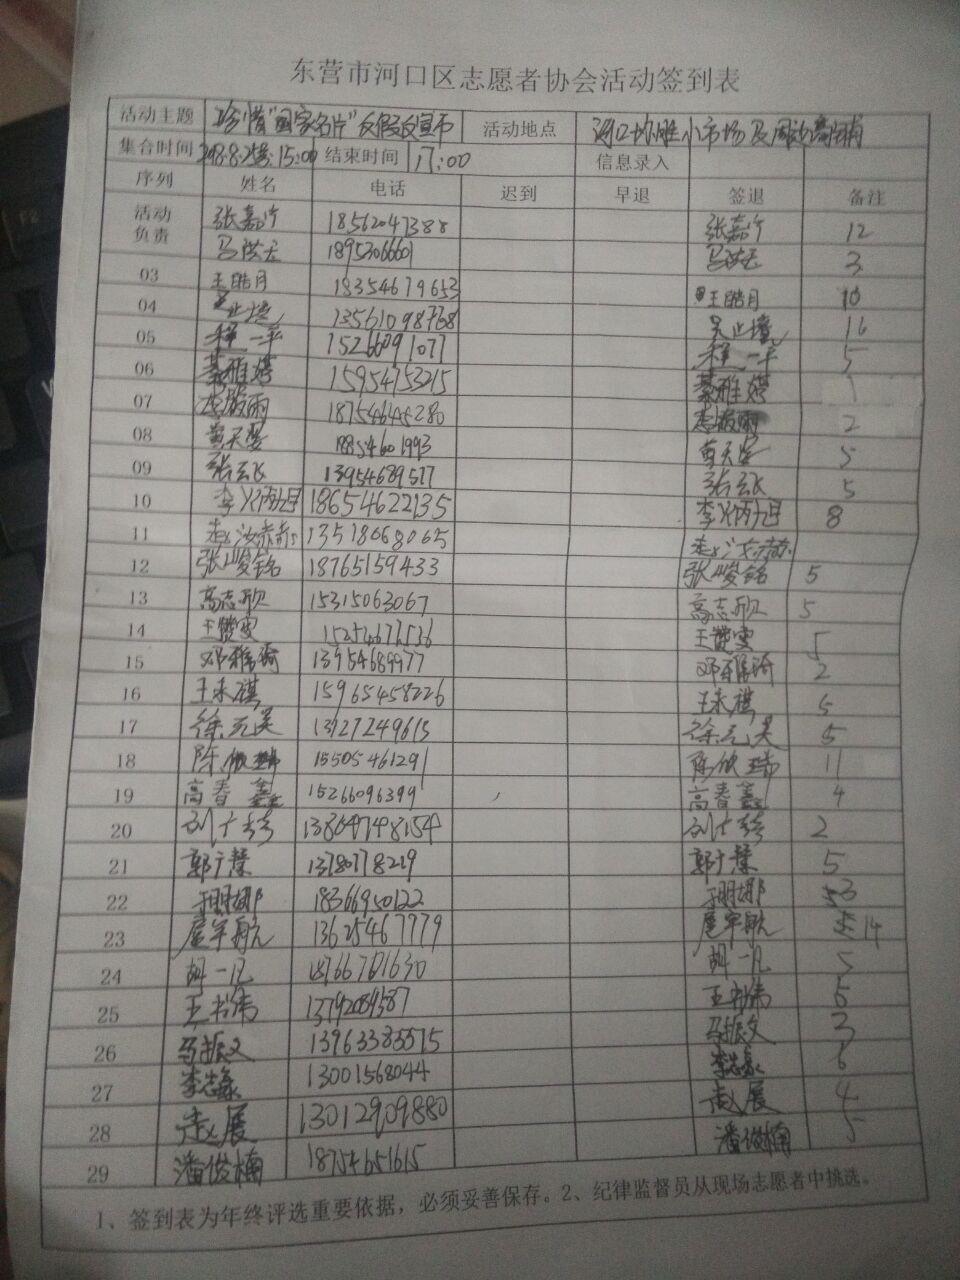 东营市河口区志愿者协会活动签到表
活动主题 珍惜"国家名片"反假反宣币 活动地点 河口地雕小市场及周边商铺
集合时间 15:00 结束时间 17:00 信息录入
序列 姓名 电话 迟到 早退 签退 备注
活动负责 张嘉许 18562047388 张嘉许 12
马洪玉 1895306660 马洪玉 3
03 王皓月 18354679653 王皓月 10
04 吴止境 13561098768 吴止境 16
05 程一平 15266091077 程一平 5
06 綦雅婷 15954753215 綦雅婷 1
07 李毅雨 18754645280 李毅雨 2
08 黄天爱 18854601993 黄天爱 5
09 张云飞 13954689577 张云飞 5
10 李炳旭 18654622135 李炳旭 8
11 赵汝赫 13518668065 赵汝赫
12 张峻铭 18765159433 张峻铭 5
13 高志欣 15315063067 高志欣 5
14 王赞雯 15254677536 王赞雯 5
15 邓雅琦 13954689977 邓雅琦 2
16 王永祺 15965458226 王永祺 5
17 徐元昊 13127249615 徐元昊 5
18 陈欣瑞 15505461291 陈欣瑞 11
19 高春鑫 15266096399 高春鑫 4
20 13864748154 2
21 郭广馨 13780778219 郭广馨 5
22 18366950122 3
23 扈军航 13625467779 扈军航 14
24 胡一凡 18766761630 胡一凡 5
25 王书伟 13792089587 王书伟 5
26 马振文 13963383575 马振文 3
27 李志豪 13001568044 李志豪 6
28 赵展 13012909880 赵展 4
29 潘俊楠 18754651615 潘俊楠 5
1、签到表为年终评选重要依据，必须妥善保存。2、纪律监督员从现场志愿者中挑选。